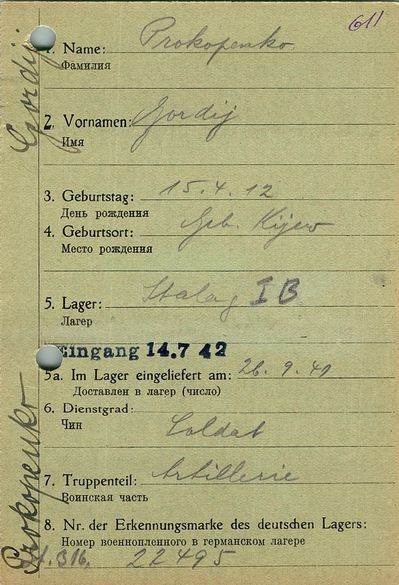 611
1. Name: Prokopenko
Фамилия
Gordij
2. Vornamen: Gordij
Имя
3. Geburtstag: 15.4.12
День рождения
4. Geburtsort: Geb. Kijew
Место рождения
5. Lager: Stalag I B
Лагер
Eingang 14.7 42
5a. Im Lager eingeliefert am: 26.9.41
Доставлен в лагер (число)
6. Dienstgrad: Soldat
Чин
7. Truppenteil: Artillerie
Воинская часть
Prokopenko
8. Nr. der Erkennungsmarke des deutschen Lagers:
Номер военнопленного в германском лагере
316. 22495